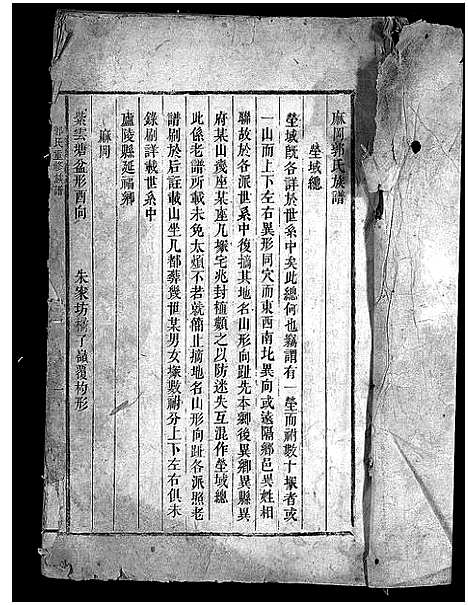 麻岡郭氏族譜
塋域總
塋域旣各詳於世系中矣此總何也竊謂有一塋而祔數十塚者或
一山而上下左右異形同穴而東西南北異向或遠隔鄉邑異姓相
聯故於各派世系中後摘其地名山形向趾先本鄉後異鄉異縣異
府某山幾座某座几塚宅兆封植顧之以防迷失互混作塋域總
此係老譜所載未免太煩不若就簡止摘地名山形向趾各派照老
譜刷於后註載山坐几都葬幾世某男女塚數祔分上下左右俱未
錄刷詳載世系中
廬陵縣延福鄉
麻岡
紫雲塘盆形酉向 朱家坊橋了嶺覆杓形
郭氏重修族譜